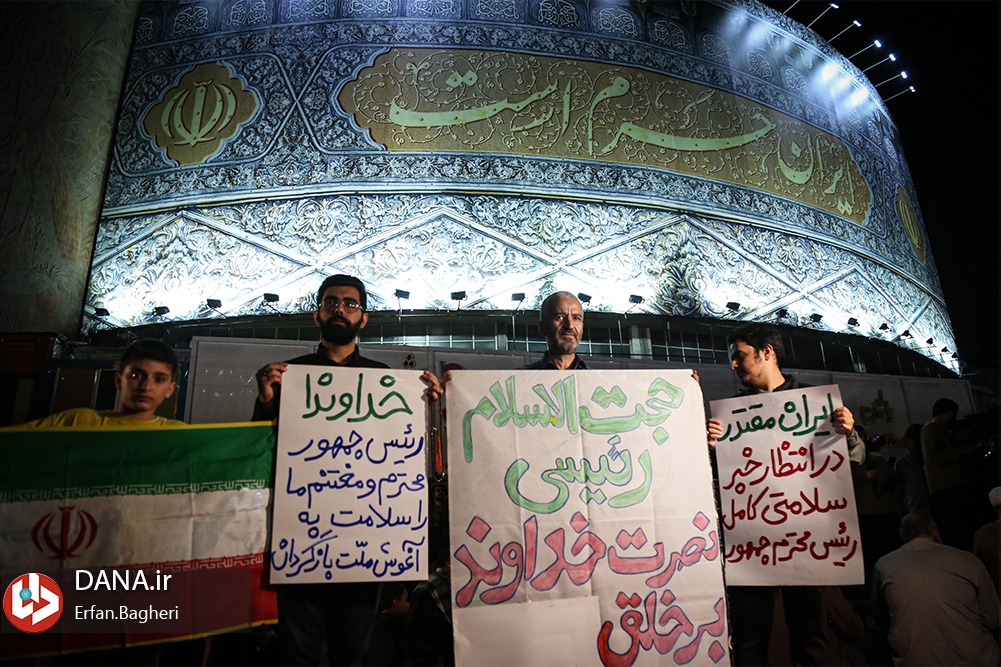 ایران حرم است
خداوندا
رئیس جمهور
محترم و مغتنم ما
را سلامت به
آغوش ملّت بازگردان
حجت السلام
رئیسی
نصرت خداوند
بر خلق
ایران مقتدر
در انتظار خبر
سلامتی کامل
رئیس محترم جمهور
DANA.ir
Erfan.Bagheri